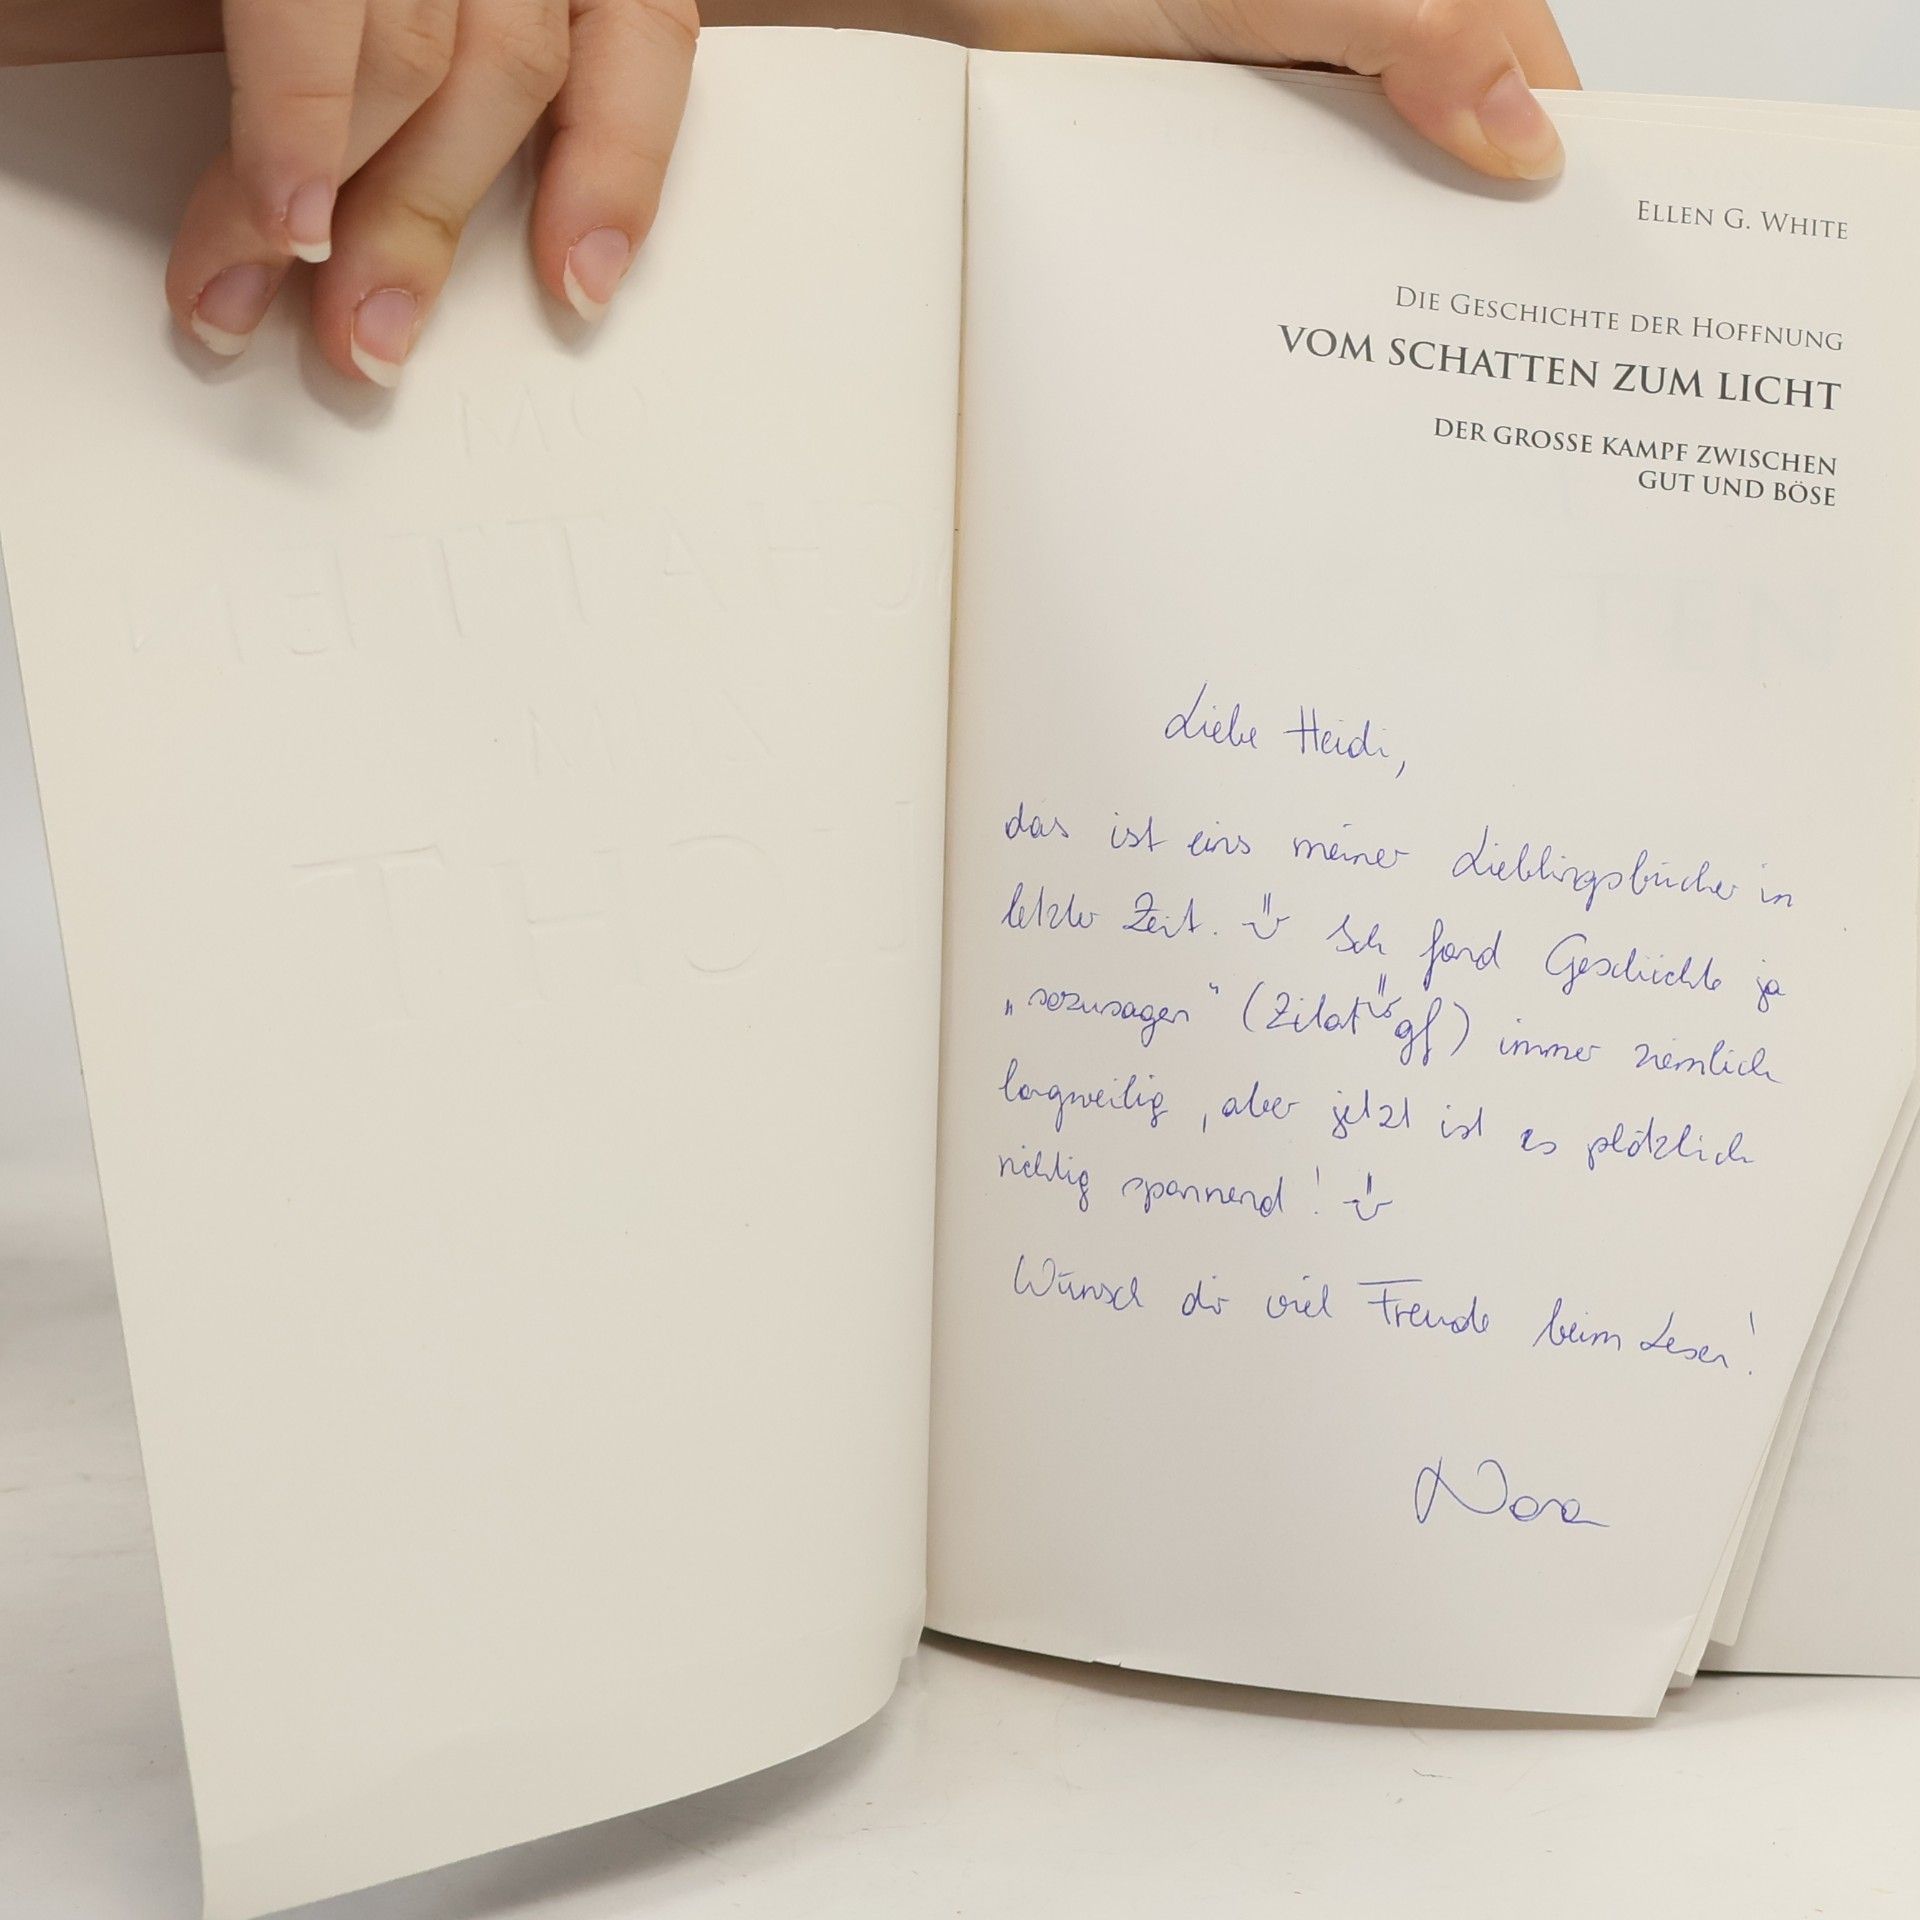 ELLEN G. WHITE
DIE GESCHICHTE DER HOFFNUNG
VOM SCHATTEN ZUM LICHT
DER GROSSE KAMPF ZWISCHEN
GUT UND BÖSE
Liebe Heidi,
das ist eins meiner Lieblingsbücher in
letzter Zeit. Ich fand Geschichte ja
„sozusagen“ (Zitat) immer ziemlich
langweilig, aber jetzt ist es plötzlich
richtig spannend!
Wünsch dir viel Freude beim Lesen!
Nora